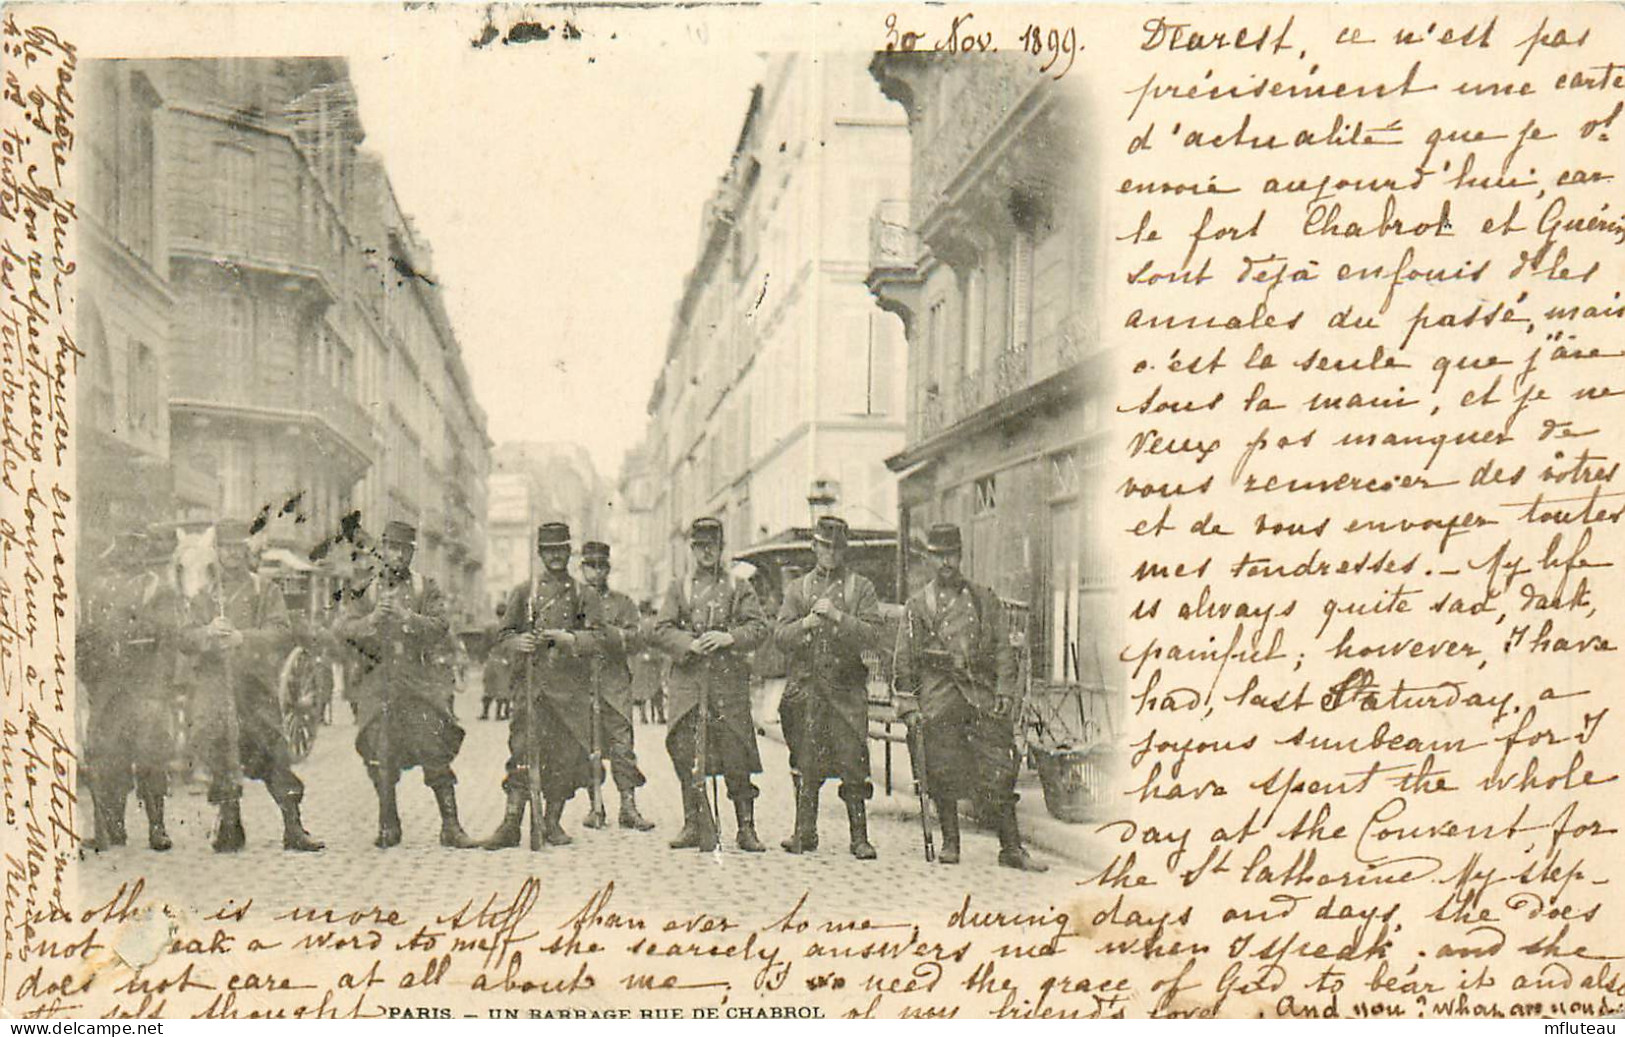 30 Nov. 1899.
Dearest, ce n'est pas
précisément une carte
d'actualité que je vs
envoie aujourd'hui, car
le fort Chabrol et Guérin
sont déjà enfouis ds les
annales du passé, mais
c'est la seule que j'aie
sous la main, et je ne
veux pas manquer de
vous remercier des vôtres
et de vous envoyer toutes
mes tendresses. - My life
is always quite sad, dark,
painful; however, I have
had, last Saturday, a
joyous sunbeam for I
have spent the whole
day at the Convent, for
the St Catherine. My step-
mother is more stiff than ever to me, during days and days, she does
not speak a word to me, she scarcely answers me when I speak. and she
does not care at all about me; I need the grace of God to bear it and also
the thought of my friend's love. And you? What are you
PARIS. - UN BARRAGE RUE DE CHABROL
J'espère jeudi trouver encore un petit mot
de vs. Mon respectueux souvenir à votre Maman
à vs toutes les tendresses de votre amie Renée
mfluteau